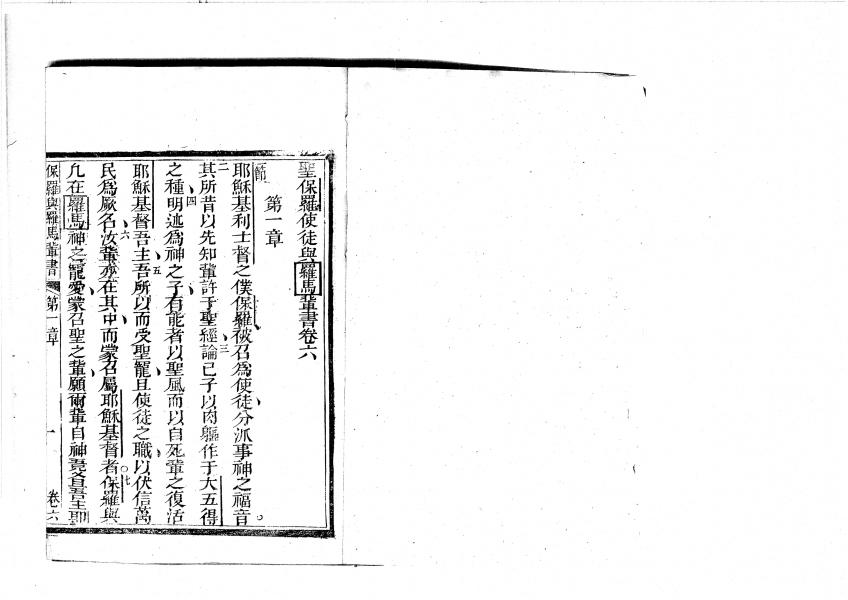 聖保羅使徒與羅馬輩書卷六
第一章
節
耶穌基利士督之僕保羅被召為使徒分派事神之福音
二
其所昔以先知輩許于聖經論己子以肉軀作于大五得
三
四
之種明迹為神之子有能者以聖風而以自死輩之復活
耶穌基督吾主吾所以而受聖寵且使徒之職以伏信萬
五
民為厥名汝輩亦在其中而蒙召屬耶穌基督者保羅與
六
七
凢在羅馬神之寵愛蒙召聖之輩願爾輩自神吾主耶
保羅與羅馬輩書 第一章 一 卷六